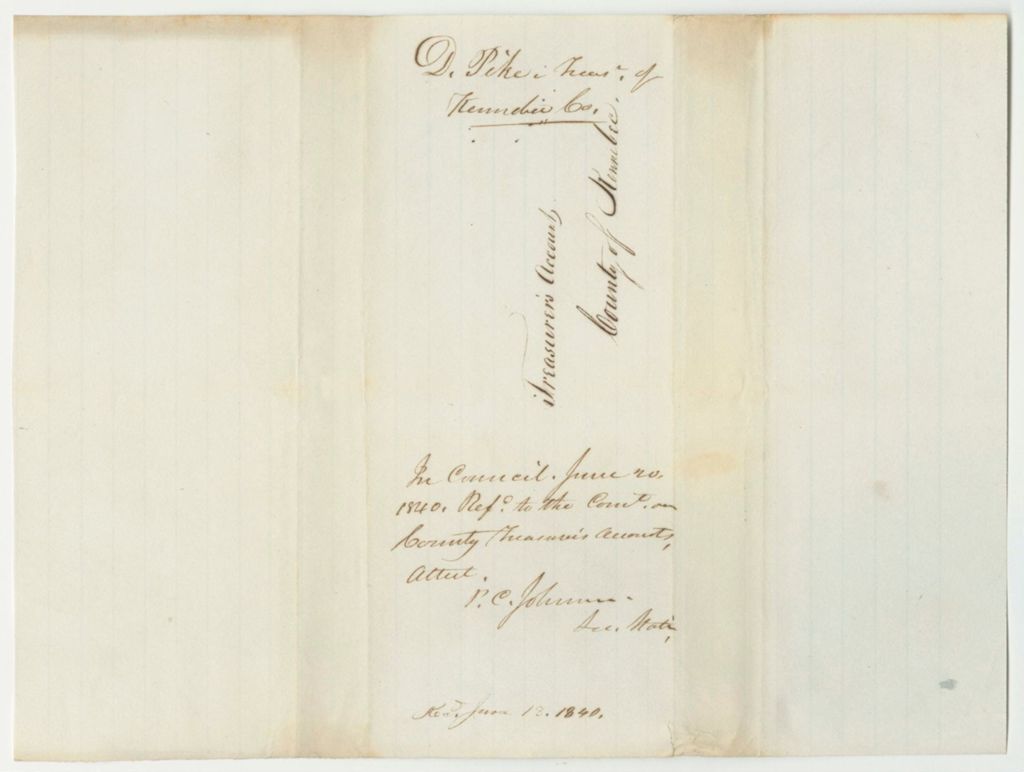 D. Pike, Treasr. of
Kennebec Co.
Treasurer's Account,
County of Kennebec.
In Council. June 20.
1840. Refd. to the Comte. on
County Treasurer's Accounts,
Attest.
P. C. Johnson.
Sec. State,
Recd. June 18. 1840.